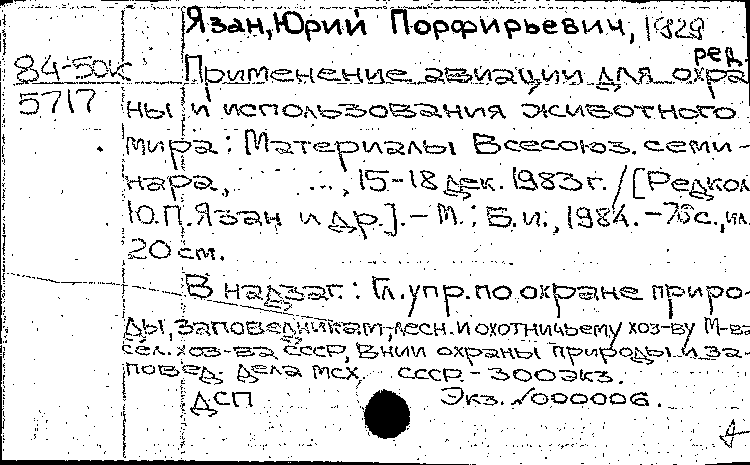 Язан, Юрий Порфирьевич, 1929
ред.
84-50к Применение авиации для охра
5717 ны и использования животного
мира: Материалы Всесоюз. семи-
нара, ..., 15-18 дек. 1983 г. / [Редкол
Ю.П. Язан и др.]. - М.: Б.и., 1984. - с., ил.
20 см.
В надзаг.: Гл. упр. по охране приро-
ды, заповедникам, лесн. и охотничьему хоз-ву М-ва
сел. хоз-ва СССР, ВНИИ охраны природы и за-
повед. дела МСХ СССР - 300 экз.
ДСП Экз. №000006.